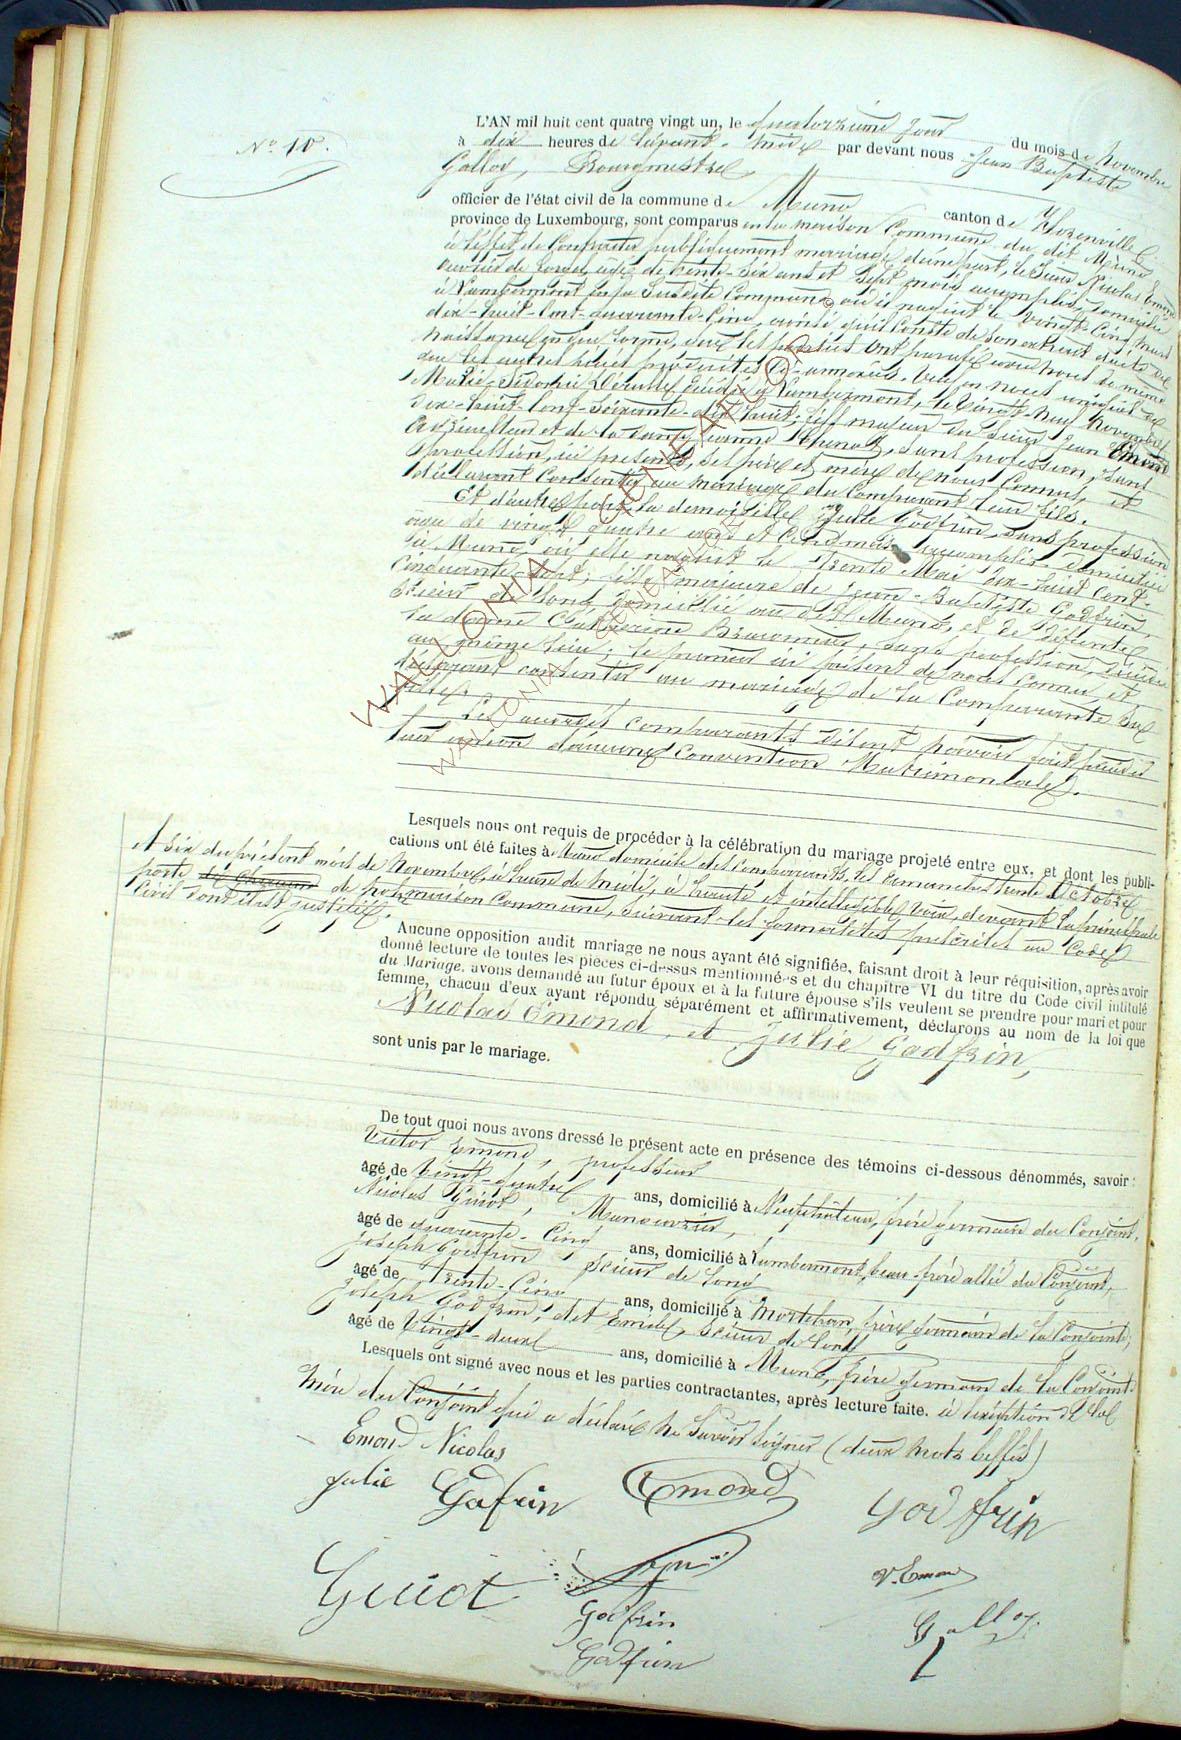 N° 10.
L'AN mil huit cent quatre vingt un, le quatorzième jour du mois de Novembre
à dix heures de levant-midi par devant nous Jean Baptiste
Galloy, Bourgmestre,
officier de l'état civil de la commune de Muno canton de Florenville
province de Luxembourg, sont comparus en la maison Commune du dit Muno
à l'effet de Contracter publiquement mariage d'une part, le Sieur Nicolas Emond
ouvrier de forges, âgé de trente-six ans et Sept mois accomplis, domicilié
à Lambermont en la Susdite Commune où il naquit le vingt-Cinq mars
dix-huit-Cent-quarante-Cinq, ainsi qu'il conste de son extrait d'acte de
naissance en due forme, que les parties ont parafé avec nous de même
que les autres pièces produites ci-annexées. Veuf en noces uniques de
Marie décédée à Lambermont, le Vingt-neuf Novembre
dix-huit-Cent-Soixante-dix huit; fils majeur du Sieur Jean Emond
et de la dame Jeanne sans profession,
profession, ici présents, ses père et mère de nous Connus, et
déclarant Consentir au mariage du Comparant leur fils.
Et d'autre part la demoiselle Julie Godfrin, sans profession
âgée de vingt quatre ans et Cinq mois accomplis, domiciliée
à Muno, où elle naquit le Trente Mai dix-huit Cent-
Cinquante-Sept; fille majeure de Jean-Baptiste Godfrin,
Scieur de long domicilié au dit Muno, et de défunte
la dame Catherine sans profession, décédée
au même lieu; le premier ici présent de nous Connu et
déclarant consentir au mariage de la Comparante Sa
fille.
Les susdits comparants disent n'avoir fait précéder
leur union d'aucune Convention Matrimoniale.
Lesquels nous ont requis de procéder à la célébration du mariage projeté entre eux, et dont les publi-
cations ont été faites à Muno domicile des comparants les dimanches trente Octobre
et six du présent mois de Novembre, à l'heure de midi, à haute et intelligible voix, devant la principale
porte de notre maison Commune, suivant les formalités prescrites au Code
Civil dont il est justifié.
Aucune opposition audit mariage ne nous ayant été signifiée, faisant droit à leur réquisition, après avoir
donné lecture de toutes les pièces ci-dessus mentionnées et du chapitre VI du titre du Code civil intitulé
du Mariage, avons demandé au futur époux et à la future épouse s'ils veulent se prendre pour mari et pour
femme, chacun d'eux ayant répondu séparément et affirmativement, déclarons au nom de la loi que
Nicolas Emond, et Julie Godfrin,
sont unis par le mariage.
De tout quoi nous avons dressé le présent acte en présence des témoins ci-dessous dénommés, savoir :
Victor Emond, professeur
âgé de Vingt-quatre ans, domicilié à Neufchâteau, frère germain du Conjoint,
Nicolas Guiot, Manouvrier,
âgé de quarante-Cinq ans, domicilié à Lambermont, beau-frère allié du Conjoint,
Joseph Godfrin, Scieur de long
âgé de Trente-Cinq ans, domicilié à Mortehan, frère germain de la Conjointe,
Joseph Godfrin, dit Emile, Scieur de long
âgé de Vingt-deux ans, domicilié à Muno, frère germain de la Conjointe
Lesquels ont signé avec nous et les parties contractantes, après lecture faite. à l'exception de la
Mère du Conjoint qui a déclaré ne Savoir Signer (deux mots biffés)
Emond Nicolas
Julie Gofrin
Emond
Godffrin
Guiot
Godfrin
Godfrin
V. Emond
Galloy
WALLONIA GENEALOR
WALLONIA GENEALOR